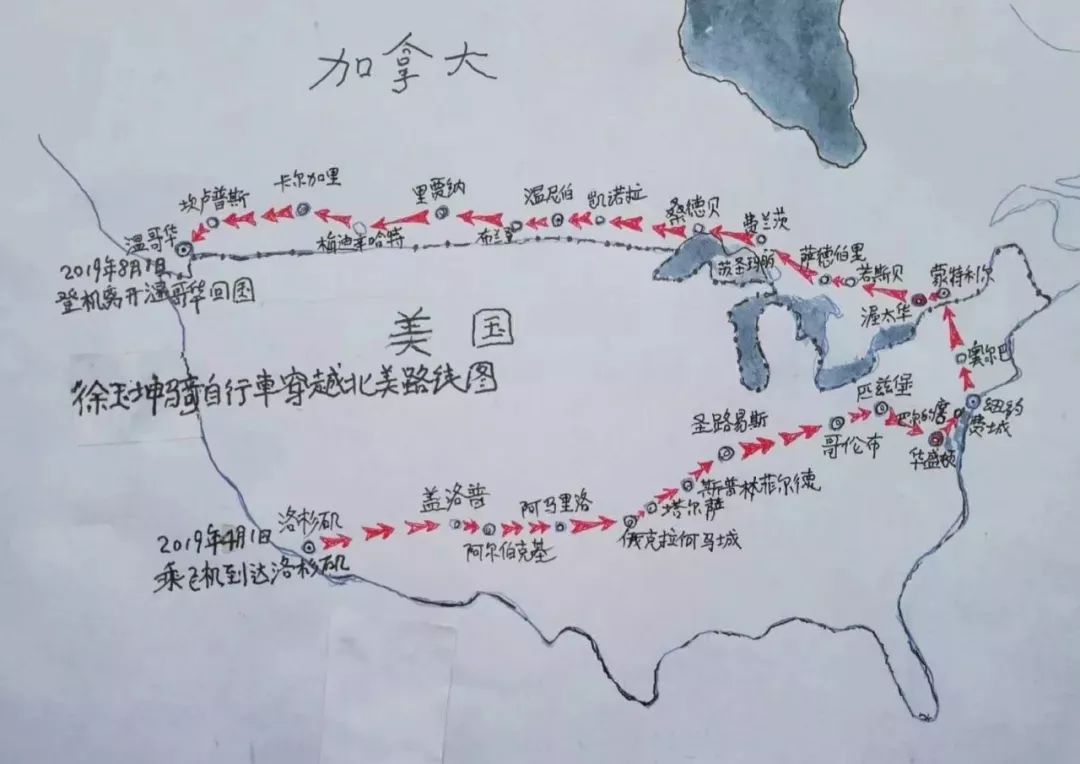 加拿大
卡尔加里
里贾纳
温尼伯
凯诺拉
坎卢普斯
桑德贝
费兰茨
温哥华
梅迪辛哈特
布兰登
苏圣玛丽
萨德伯里
若斯贝
蒙特利尔
2019年8月1日
登机离开温哥华回国
渥太华
美国
奥尔巴
徐玉坤骑自行車穿越北美路线图
匹兹堡
巴尔的摩
纽约
费城
圣路易斯
哥伦布
华盛顿
斯普林菲尔德
盖洛普
阿马里洛
塔尔萨
洛杉矶
2019年4月1日
阿尔伯克基
俄克拉何马城
乘飞机到达洛杉矶